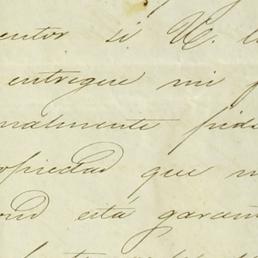 entor si V. l
entregue mi p
nalmente pido
opiedad que m
ond está garan